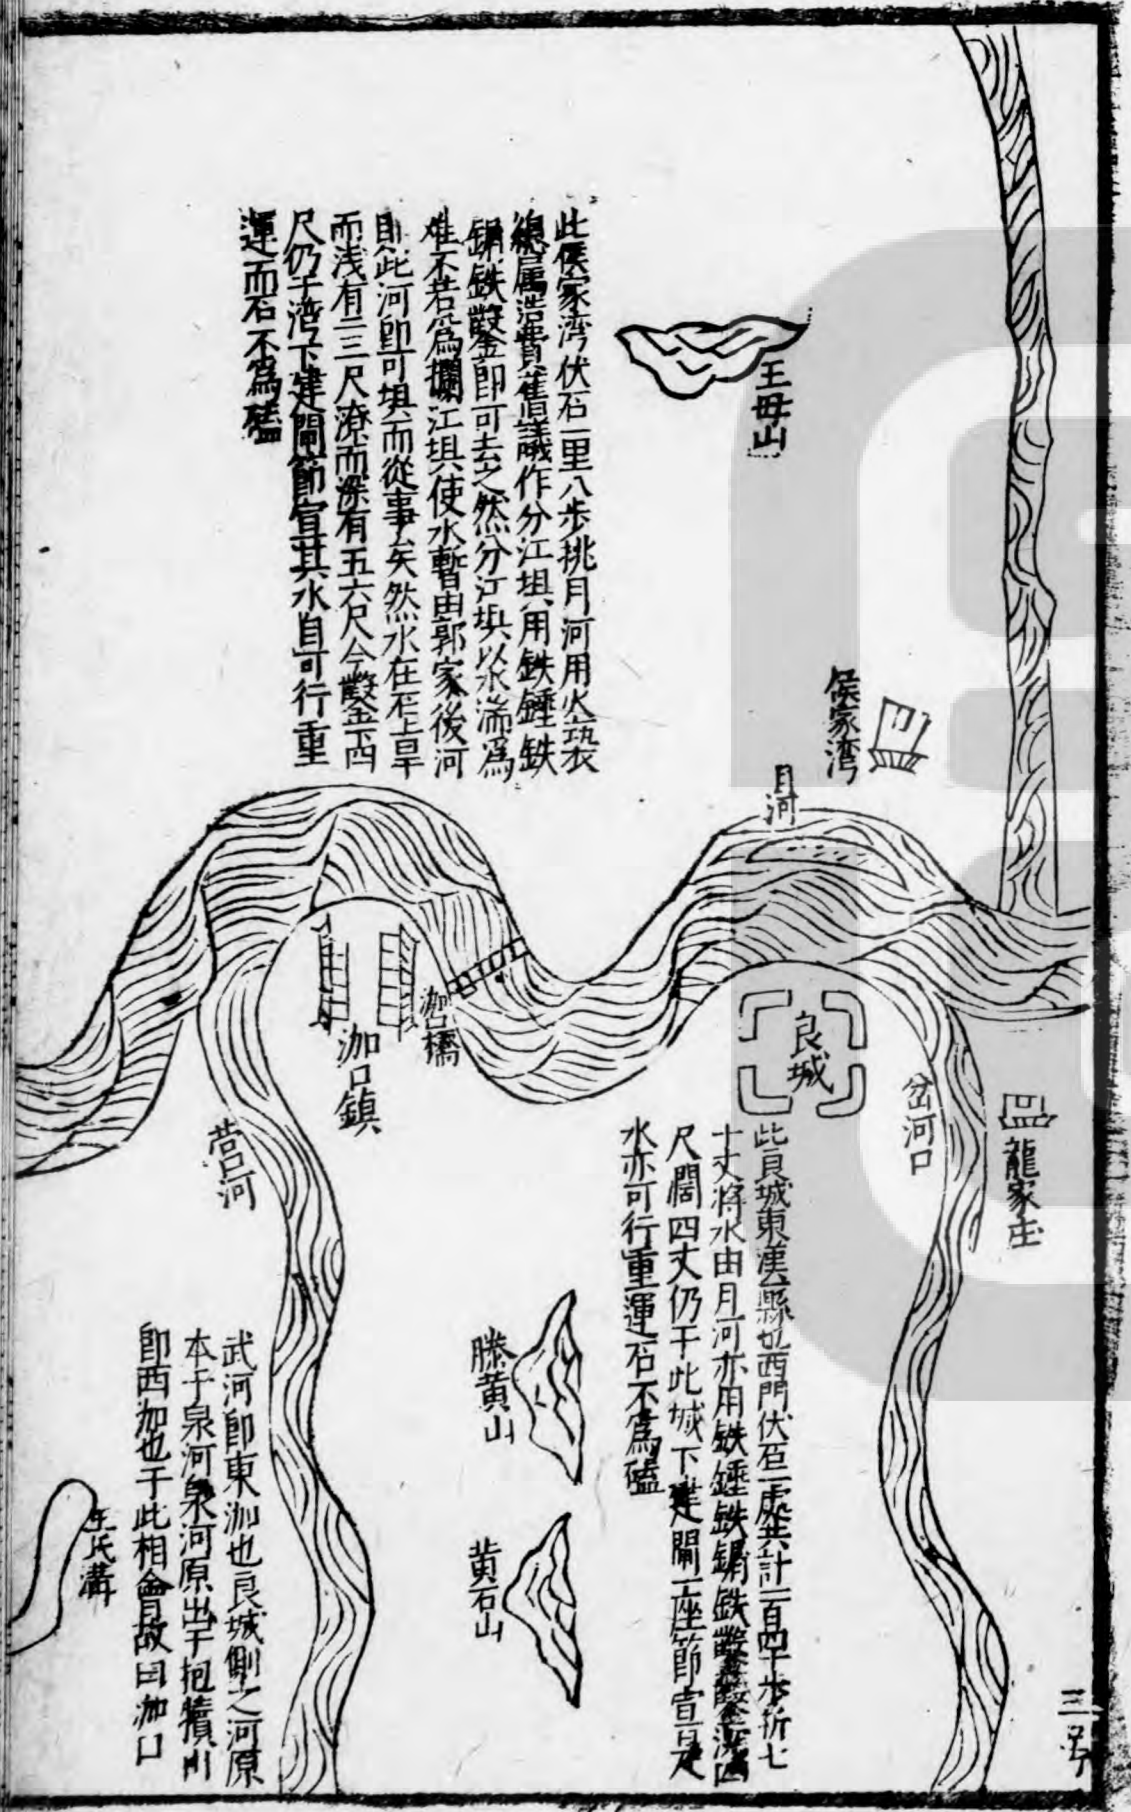 王母山
侯家湾
月河
此侯家湾伏石一里八步挑月河用火裝
總属浩費舊議作分江垻用鉄錘鉄
鍋鉄鑿即可去之然分江垻以水湍爲
难不若爲攔江垻使水暫由郭家後河
則此河即可垻而從事矣然水在石上旱
而浅有二三尺潦而深有五六尺今鑿下四
尺仍于湾下建閘節宣其水自可行重
運而石不爲礚
良城
岔河口
龍家庄
泇口橋
泇口鎮
营河
此良城東漢縣也西門伏石一處共計一百四十步折七
十丈將水由月河亦用鉄錘鉄鍋鉄鑿鑿深四
尺濶四丈仍于此城下建閘一座節宣是
水亦可行重運石不爲礚
滕黄山
黄石山
武河即東泇也良城側之河原
本于泉河泉河原出于抱犢山
即西泇也于此相會故曰泇口
王氏溝
三号